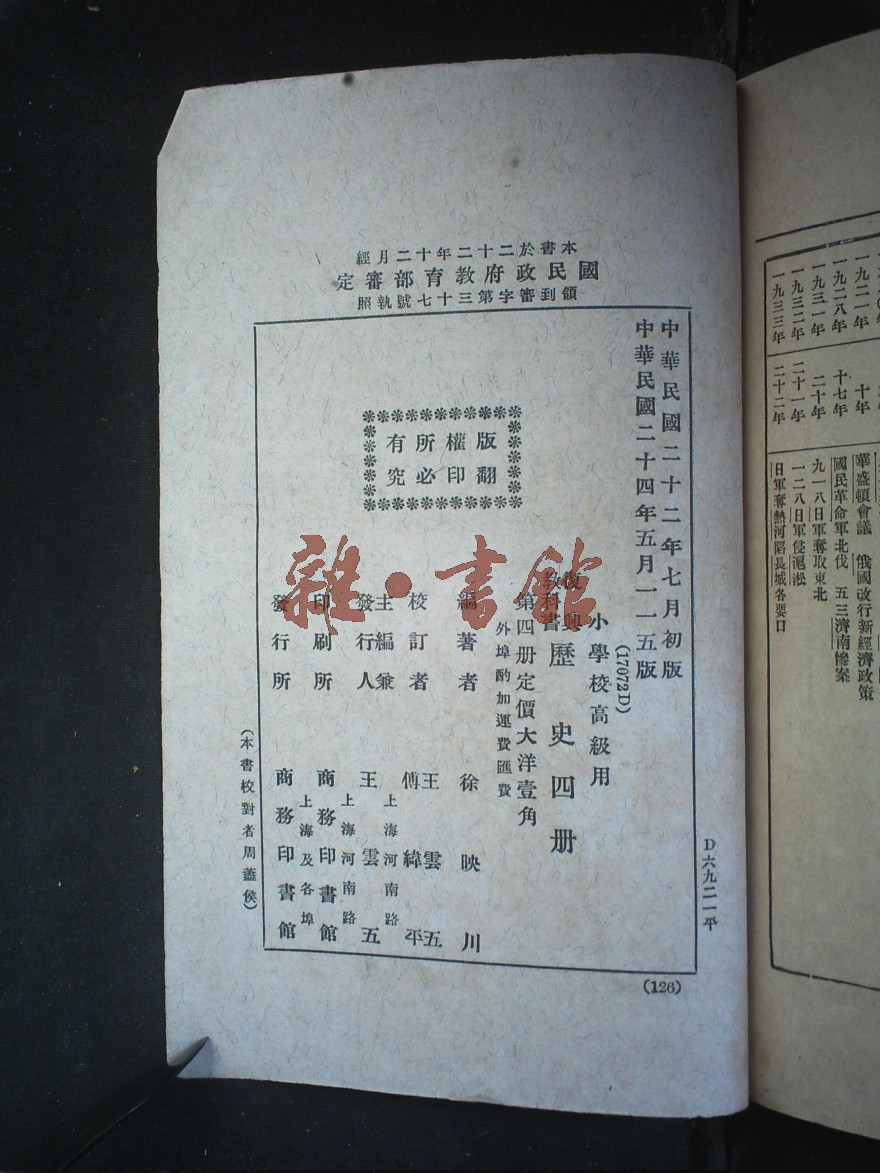 本書於二十二年十二月經
國民政府教育部審定
領到審字第三十七號執照
中華民國二十二年七月初版
中華民國二十四年五月一一五版
(17072D)
小學校高級用
復興教科書 歷史四册
第四册定價大洋壹角
外埠酌加運費匯費
版權所有
翻印必究
編著者 徐映川
校訂者 王雲五 傅緯平
上海河南路
主編兼發行人 王雲五
上海河南路
印刷所 商務印書館
上海及各埠
發行所 商務印書館
(本書校對者周藎侯)
D六九二一平
(126)
雜·書館
一九二一年 十年 華盛頓會議 俄國改行新經濟政策
一九二八年 十七年 國民革命軍北伐 五三濟南慘案
一九三一年 二十年 九一八日軍奪取東北
一九三二年 二十一年 一二八日軍侵滬淞
一九三三年 二十二年 日軍奪熱河陷長城各要口